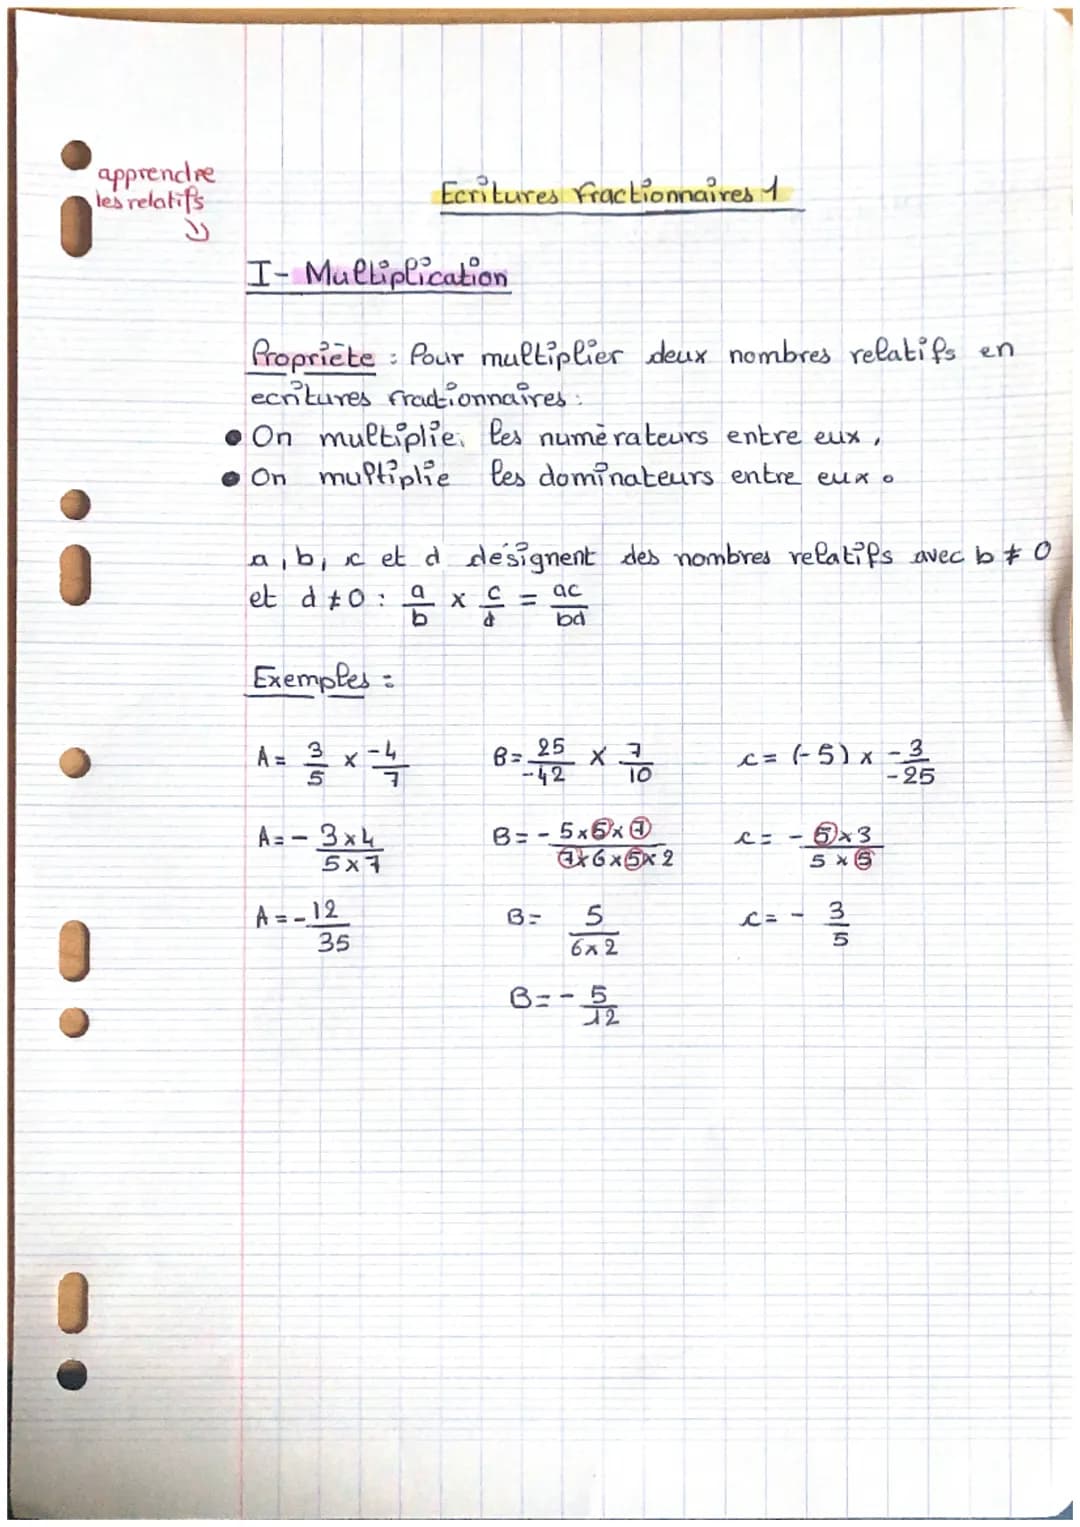 apprendre
les relatifs
Ecritures fractionnaires 1
I- Multiplication
Propriète : Pour multiplier deux nombres relatifs en
ecritures fractionnaires :
• On multiplie les numèrateurs entre eux,
• On multiplie les dominateurs entre eux.
a, b, c et d désignent des nombres relatifs avec b ≠ 0
et d ≠ 0 : a/b × c/d = ac/bd
Exemples :
A = 3/5 × -4/7   B = 25/-42 × 7/10   c = (-5) × -3/-25
A = - 3×4/5×7   B = - 5×5×7/7×6×5×2   c = - 5×3/5×5
A = - 12/35   B = 5/6×2   c = - 3/5
B = - 5/12